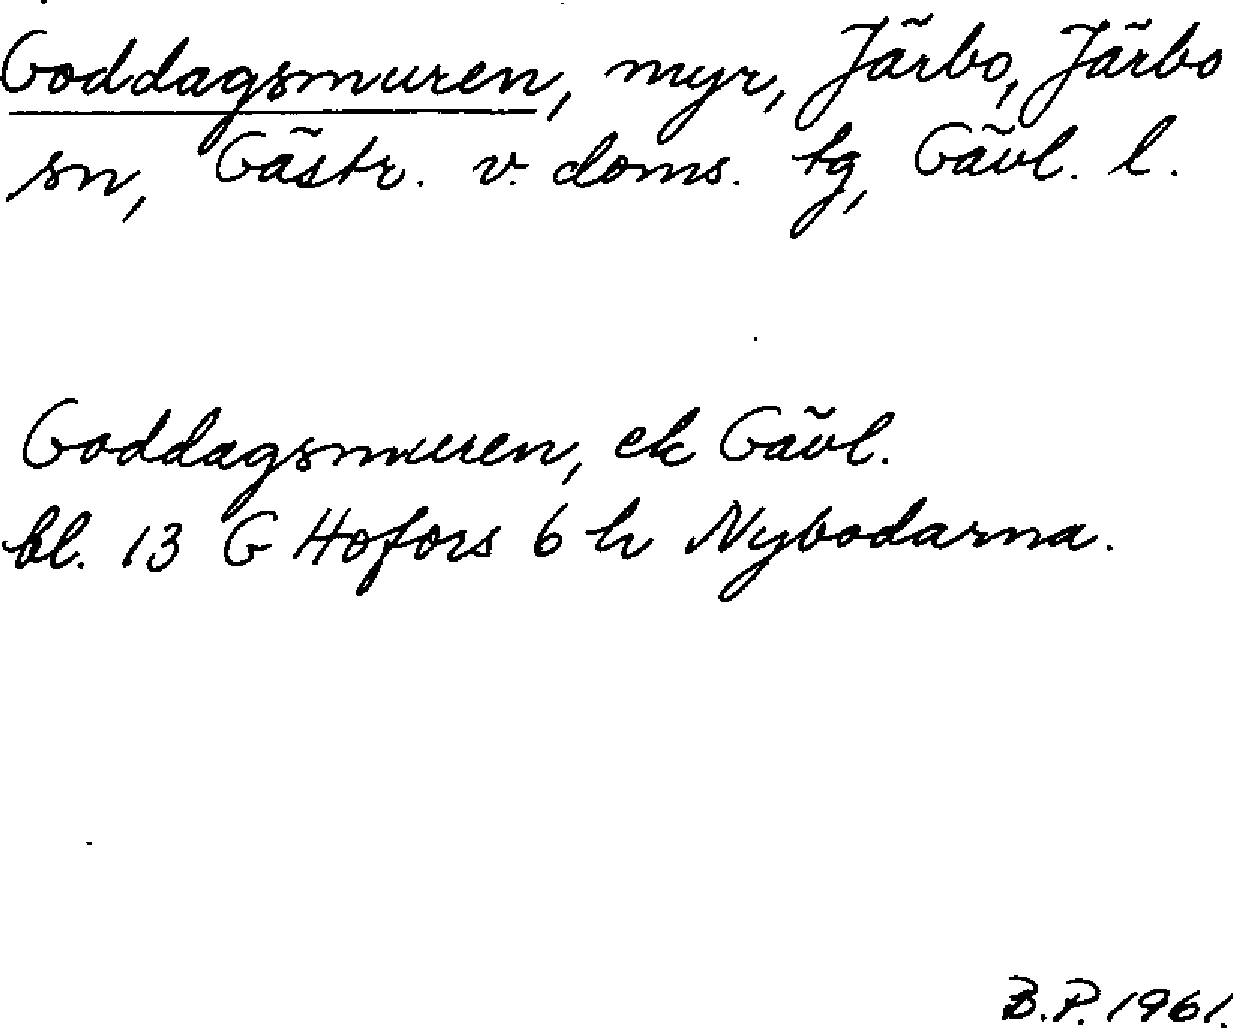 Goddagsmuren, myr, Järbo, Järbo
sn, Gästr. v. doms. tg, Gävl. l.
Goddagsmuren, ek Gävl.
bl. 13 G Hofors 6 h Nybodarna.
B.P. 1961.